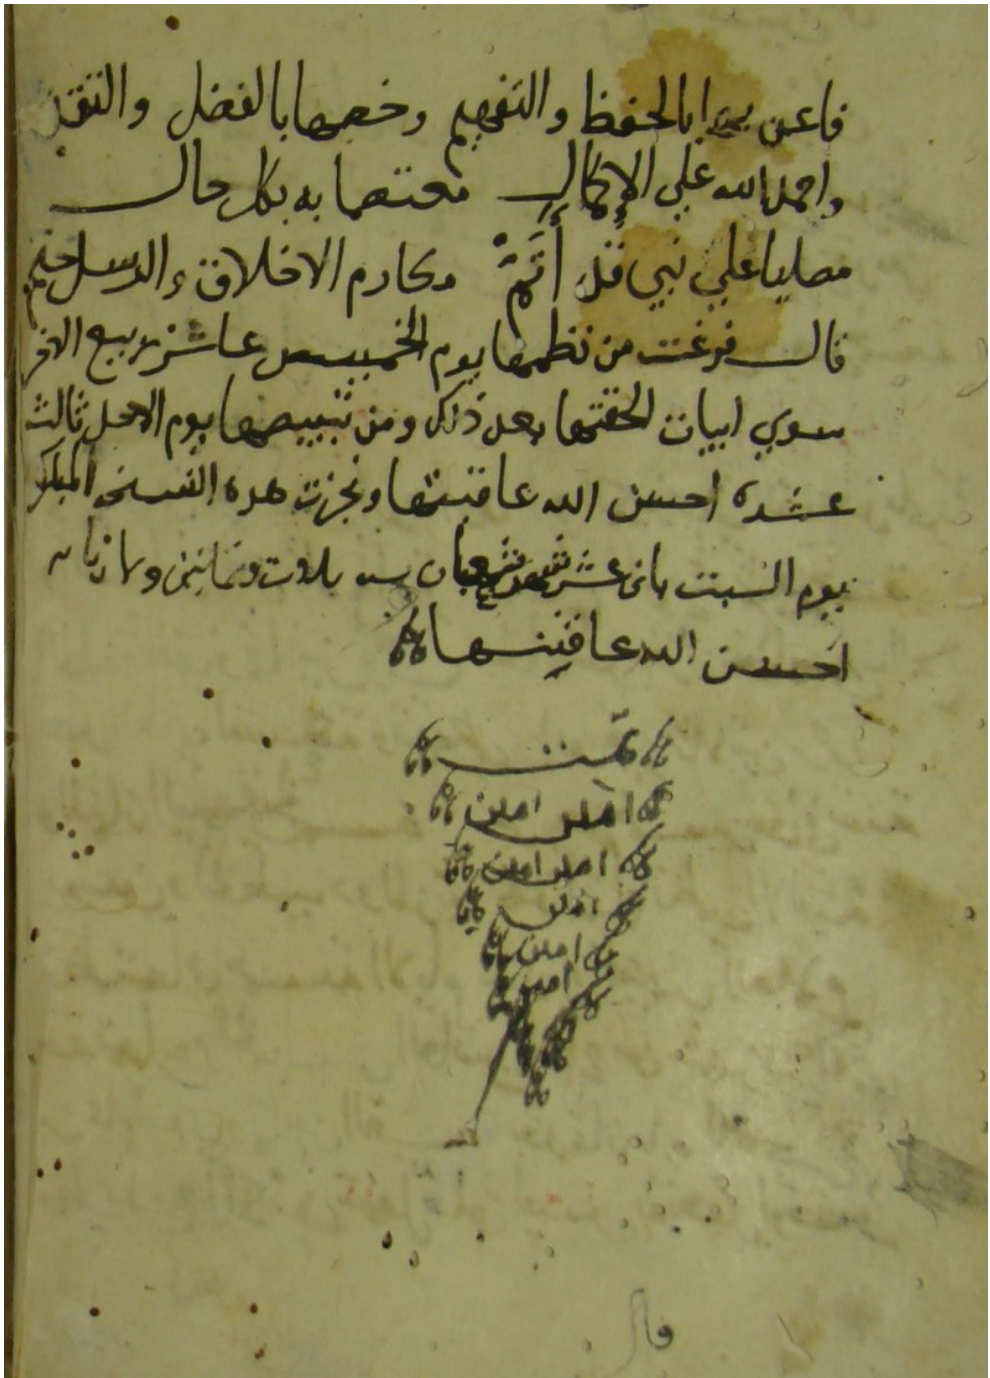 فاعن بها بالحفظ والتفهيم وخصها بالفضل والتقد
واحمد الله علي الاكمال معتصما به بكل حال
مصليا علي نبي قد أتم مكارم الاخلاق والرسل ختم
قال فرغت من نظمها يوم الخميس عاشر ربيع الاخر
سوي ابيات الحقتها بعد ذلك ومن تبييضها يوم الاحد ثالث
عشره احسن الله عاقبتها ونجزت هده النسخه المباركه
يوم السبت ثانى عشر شهر شعبان سنه ثلاث وثمانين وثمانمايه
احسن الله عاقبتها
تمت
امين امين
امين امين
امين
امين
امين
قال